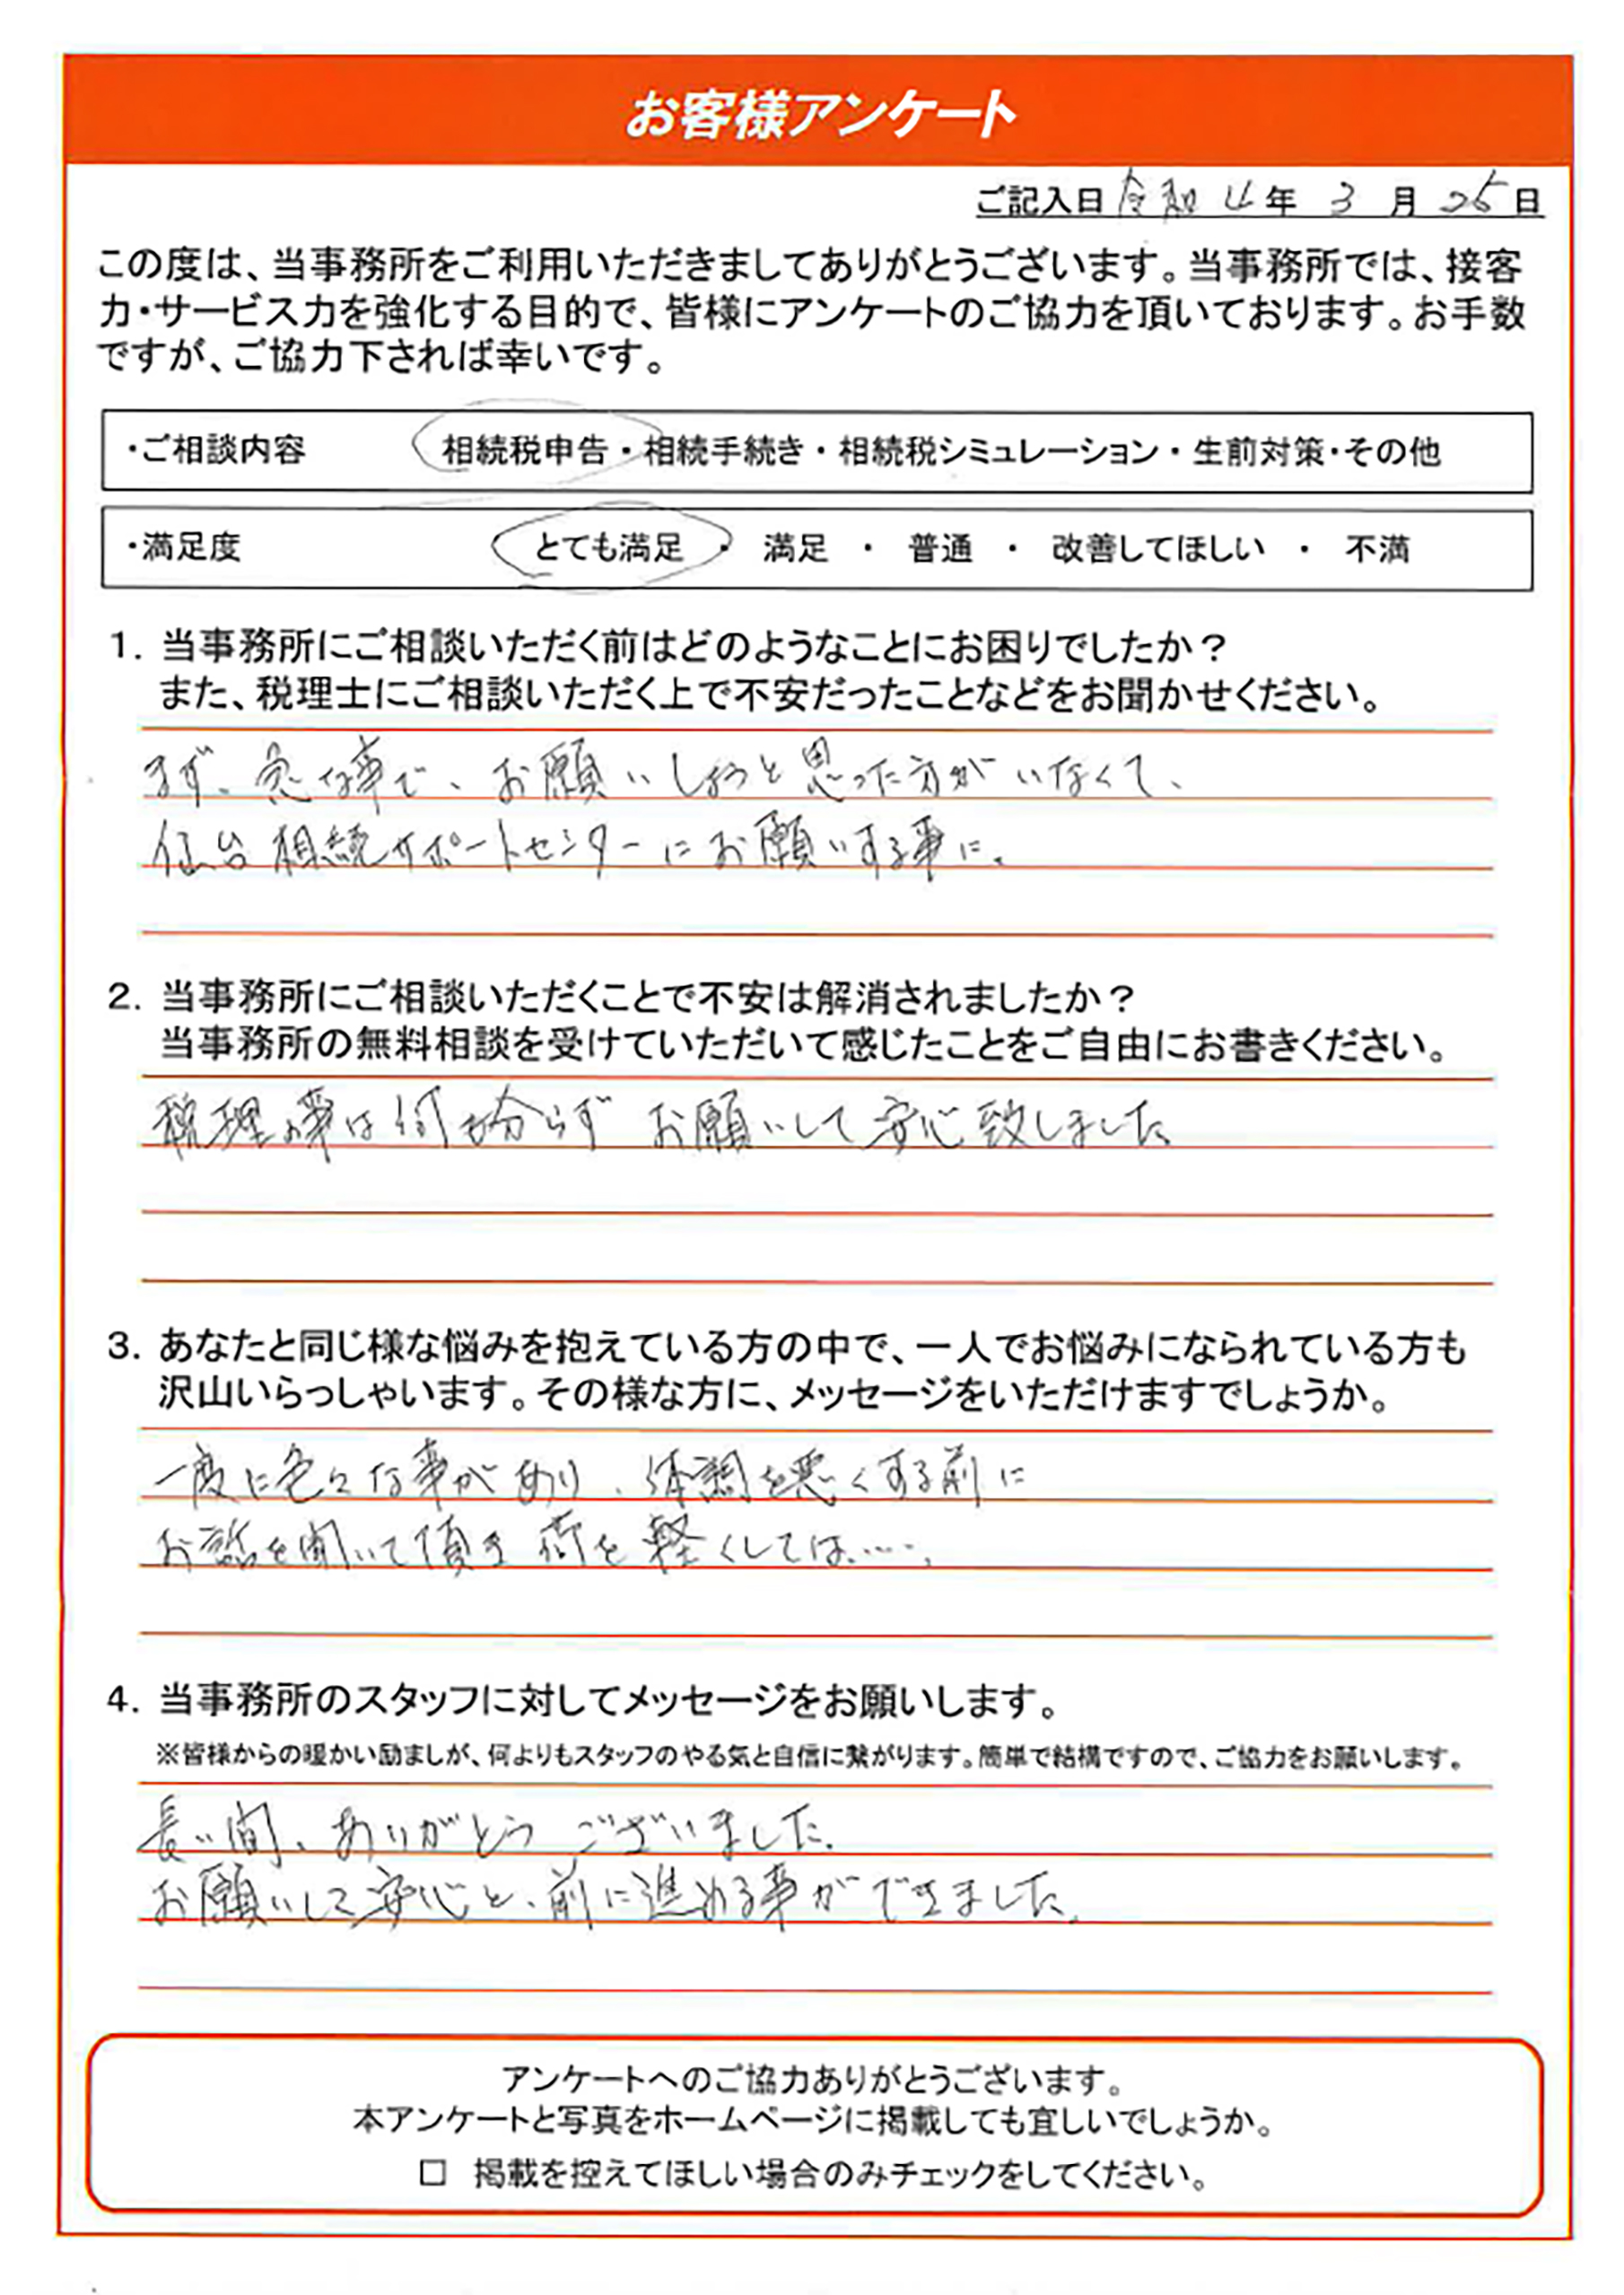 お客様アンケート
ご記入日 令和4年 3月 25日
この度は、当事務所をご利用いただきましてありがとうございます。当事務所では、接客
力・サービス力を強化する目的で、皆様にアンケートのご協力を頂いております。お手数
ですが、ご協力下されば幸いです。
・ご相談内容 相続税申告・相続手続き・相続税シミュレーション・生前対策・その他
・満足度 とても満足 ・ 満足 ・ 普通 ・ 改善してほしい ・ 不満
1. 当事務所にご相談いただく前はどのようなことにお困りでしたか？
また、税理士にご相談いただく上で不安だったことなどをお聞かせください。
まず、急な事で、お願いしようと思った方がいなくて、
仙台相続サポートセンターにお願いする事に。
2. 当事務所にご相談いただくことで不安は解消されましたか？
当事務所の無料相談を受けていただいて感じたことをご自由にお書きください。
税理の事は何も分らず お願いして安心致しました。
3. あなたと同じ様な悩みを抱えている方の中で、一人でお悩みになられている方も
沢山いらっしゃいます。その様な方に、メッセージをいただけますでしょうか。
一度に色々な事があり、体調を悪くする前に
お話を聞いて頂き 荷を軽くしては……。
4. 当事務所のスタッフに対してメッセージをお願いします。
※皆様からの暖かい励ましが、何よりもスタッフのやる気と自信に繋がります。簡単で結構ですので、ご協力をお願いします。
長い間、ありがとうございました。
お願いして安心と、前に進める事ができました。
アンケートへのご協力ありがとうございます。
本アンケートと写真をホームページに掲載しても宜しいでしょうか。
□ 掲載を控えてほしい場合のみチェックをしてください。